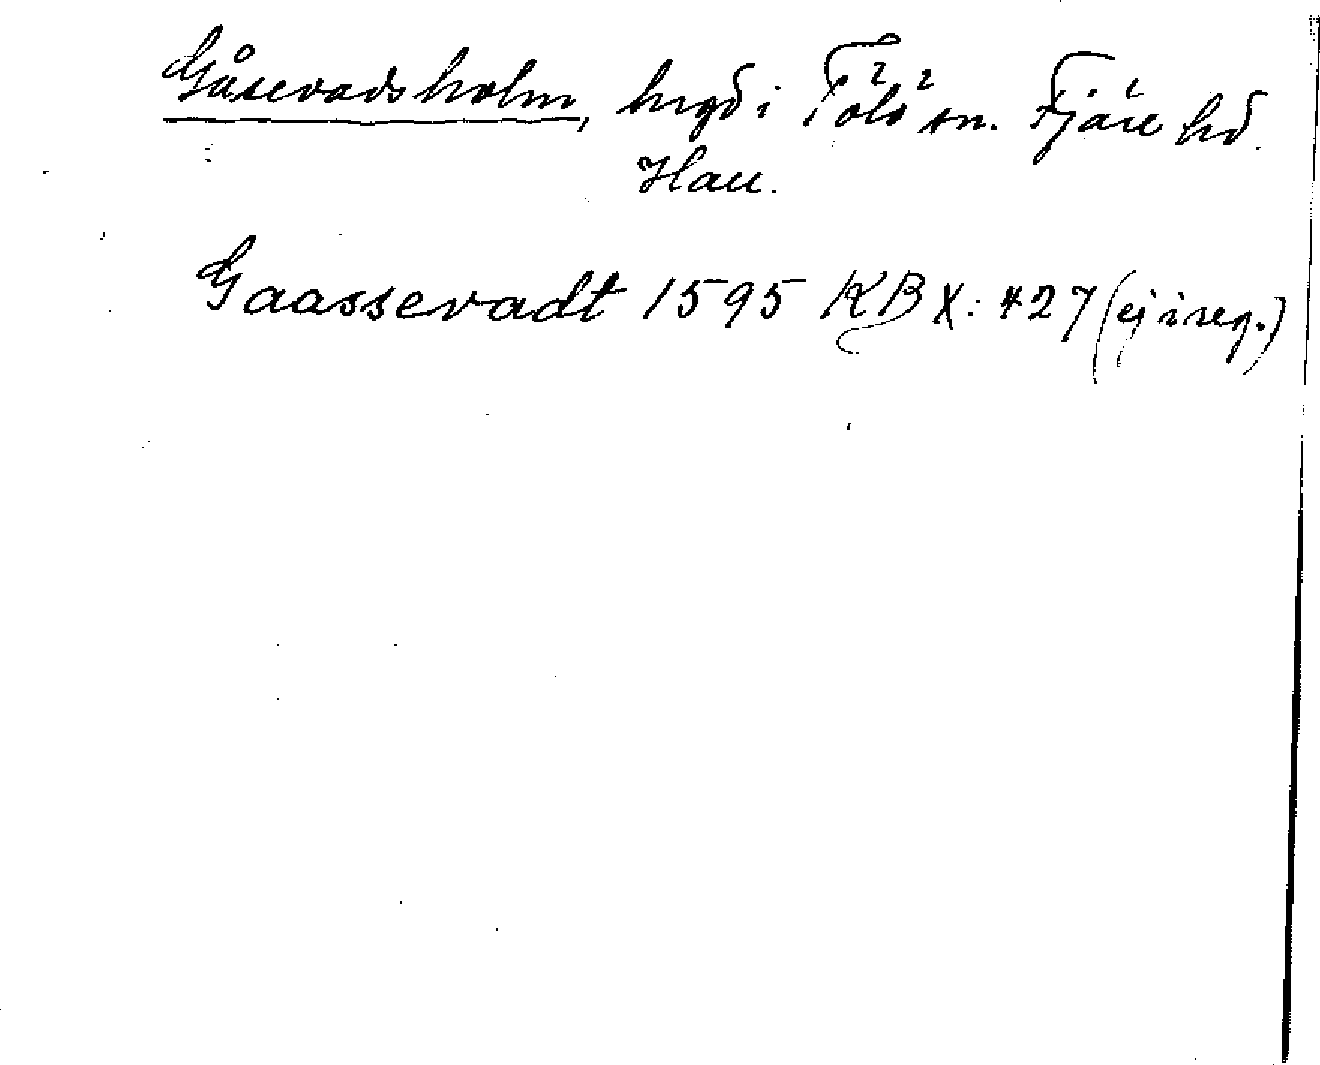 Gåsevadsholm, hrgd i Tölö sn. Fjäre hd.
Hall.
Gaassevadt 1595 KB X: 427 (ej i reg.)